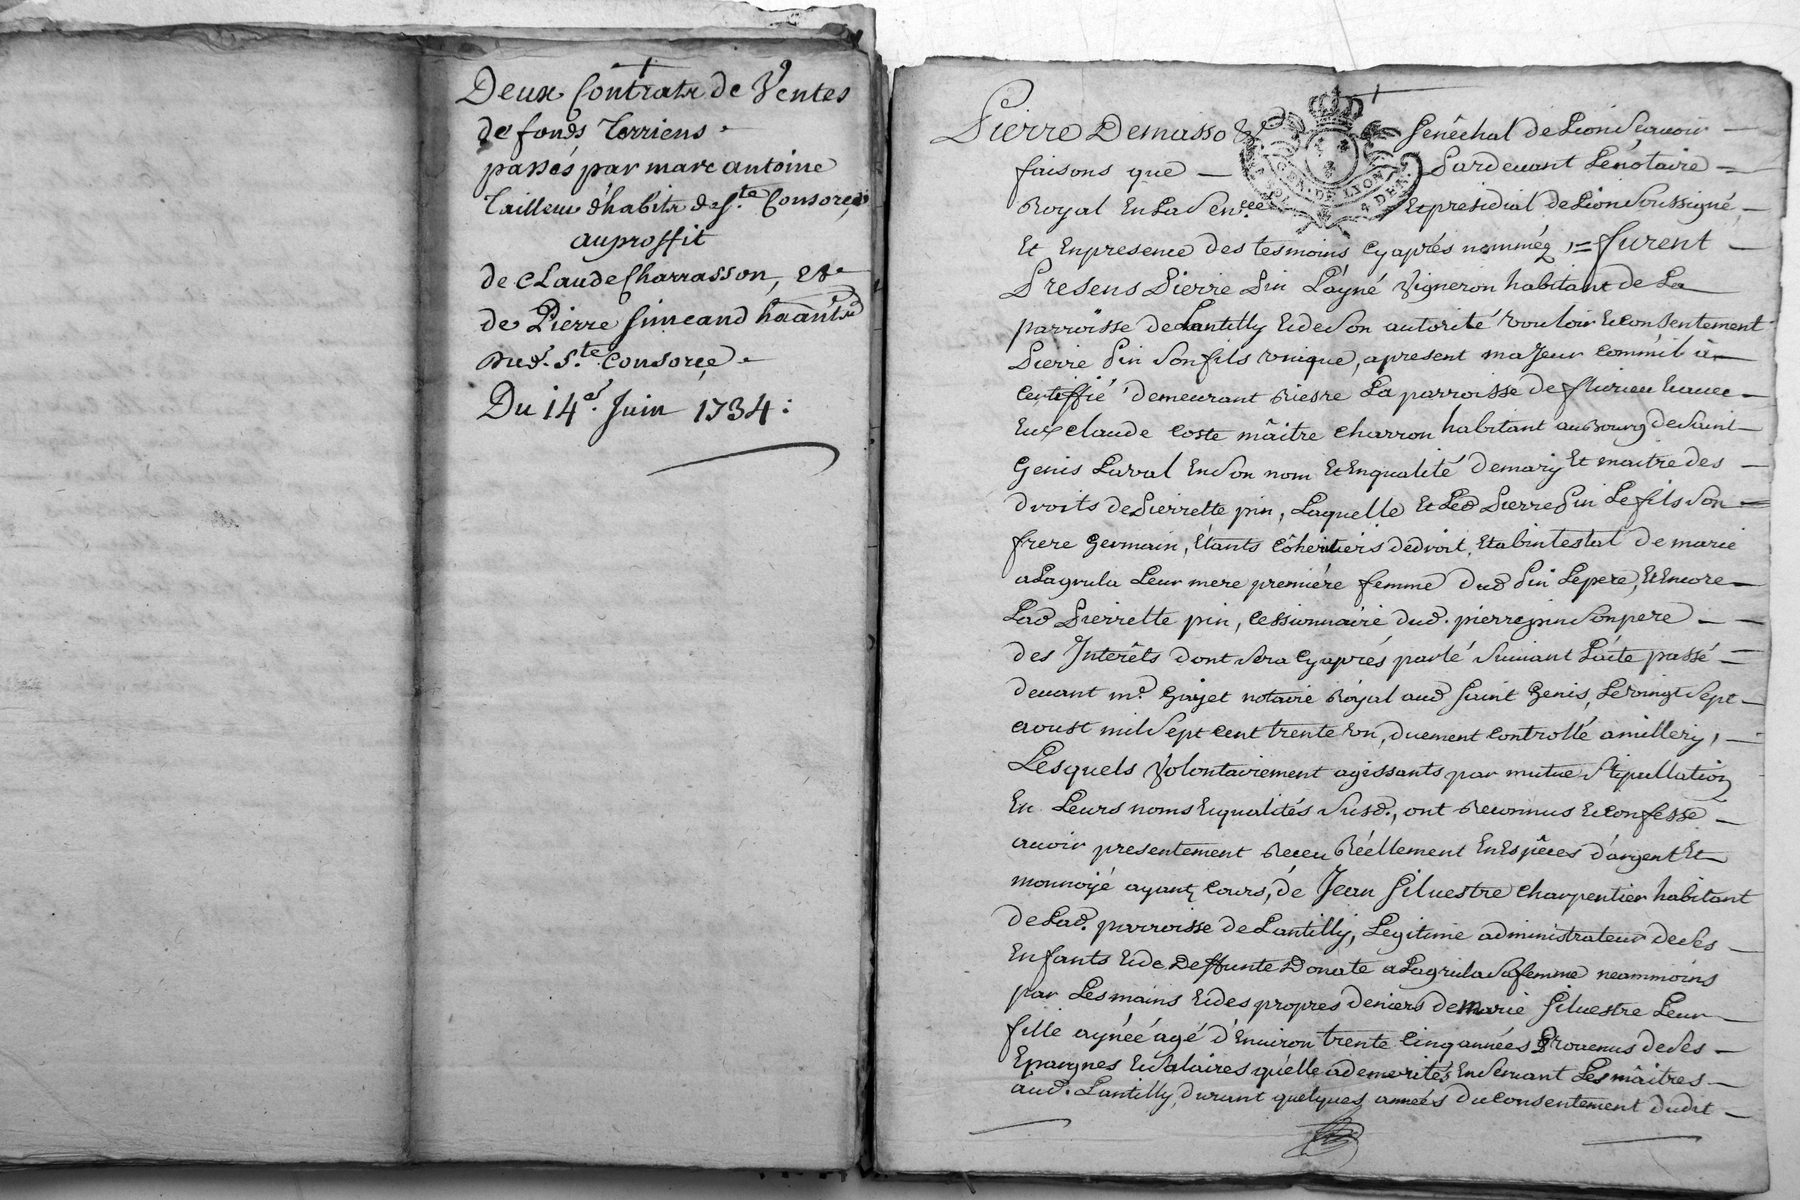 Deux Contrats de Ventes
de fonds terriens
passés par marc antoine
Tailleur d'habits de Ste Consorce
auproffit
de Claude Charrasson, &
de Pierre Simeand
dud. Ste Consorce
Du 14e Juin 1734:
Pierre Demasso Senêchal de Lion Scavoir
faisons que Pardevant Le notaire
Royal En La Sen.cée Et presidial de Lion Soussigné
Et En presence des tesmoins cyaprés nommez, furent
Presens Pierre Pin L'ayné Vigneron habitant de La
parroisse de Lantilly Et de son autorité vouloir Et consentement
Pierre Pin Son fils unique, apresent majeur comm'il a
certiffié demeurant Riesre La parroisse de flurieu
Eux claude coste mâitre charron habitant au Bourg de Saint
Genis Laval En Son nom Et En qualité de mary Et maitre des
droits de Pierrette pin, Laquelle Et Led Pierre Pin Le fils Son
frere Germain, Etants Côheritiers de droit, Et abintestat de marie
alagrula Leur mere premiére femme dud Pin Le pere, Et Encore
Lad Pierrette pin, cessionnairé dud. pierre pin Son pere
des Interêts dont Sera cyaprés parlé Suivant L'acte passé
devant me. Gayet notaire Royal aud Saint Genis, Le vingt Sept
aoust mil Sept cent trente un, duement controllé a millery,
Lesquels Volontairement agissants par mutue Stipullation
En Leurs noms Et qualités Susd., ont Reconnus Et confessé
avoir presentement Receu Réellement En Espêces d'argent Et
monnoyé ayant cours, de Jean Silvestre charpentier habitant
de Lad. parroisse de Lantilly, Legitime administrateur de Ses
Enfants Et de Deffunte Donate alagrula Sa femme neammoins
par Les mains Et des propres deniers de marie Silvestre Leur
fille aynéé agé d'Environ trente Cinq années Provenus de Ses
Epargnes Et Salaires qu'elle a demerités En Servant Les mâitres
aud. Lantilly, durant quelques anneés du consentement dudit